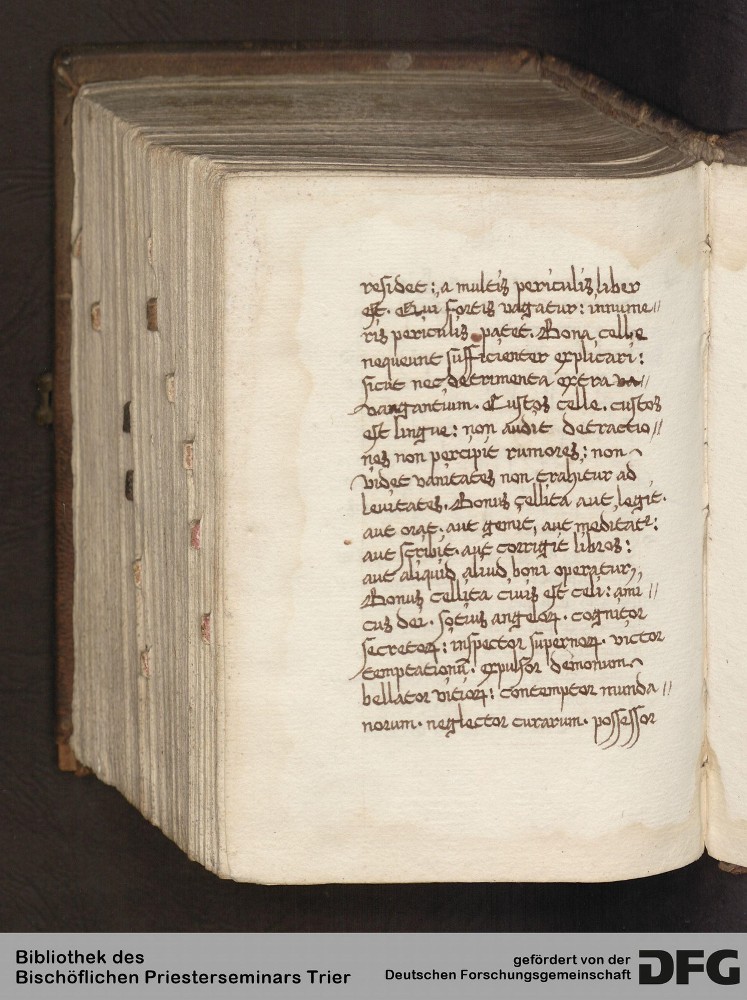 residet: a multis periculis liber
est. Qui fortis vagatur: innume//
ris periculis patet. Bona celle
nequeunt sufficienter explicari:
sicut nec detrimenta extra va//
vangantium. Custos celle. custos
est lingue: non audit detractio//
nes non percipit rumores: non
videt vanitates non trahitur ad
levitates. Bonus cellita aut legit.
aut orat. aut gemit, aut meditatr:
aut scribit. aut corrigit libros:
aut aliquid aliud boni operatur,
Bonus cellita civis est celi: ami//
cus dei. sotius angeloꝝ. cognitor
secretoꝝ: inspector supernoꝝ. victor
temptationū. expulsor demonum
bellator vicioꝝ: contemptor munda//
norum. neglector curarum. possessor
Bibliothek des
Bischöflichen Priesterseminars Trier
gefördert von der
Deutschen Forschungsgemeinschaft
DFG